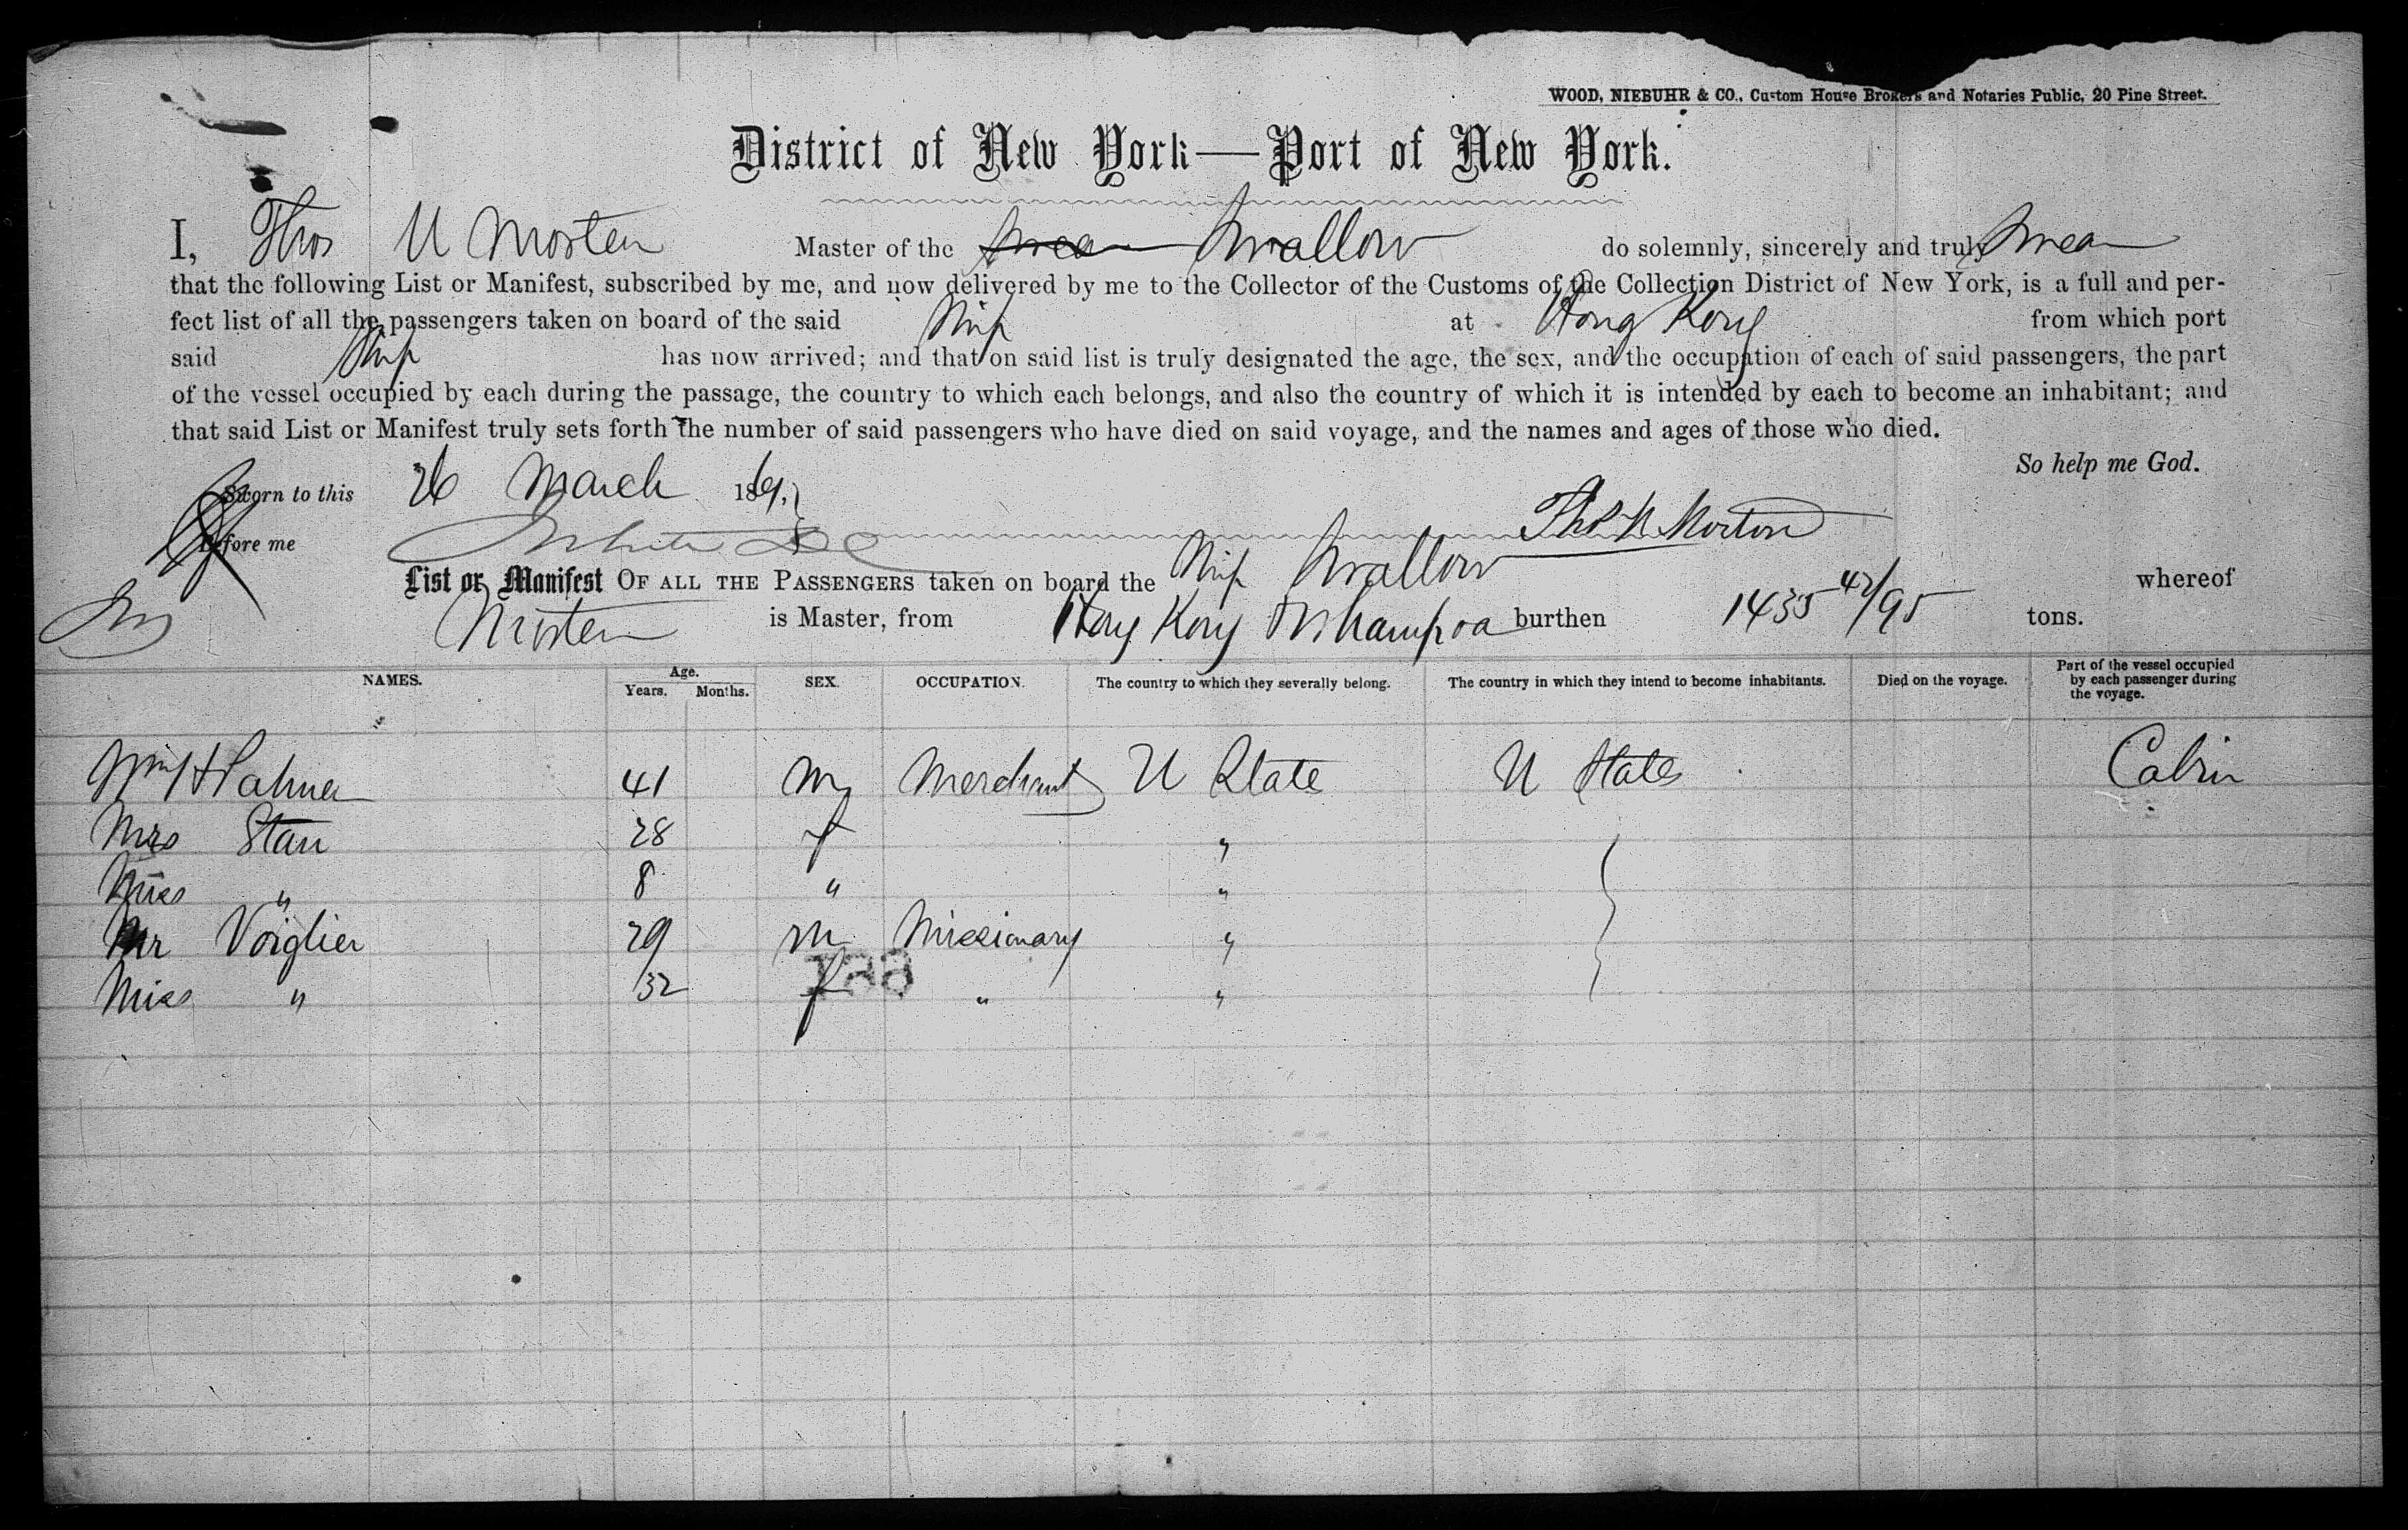 WOOD, NIEBUHR & CO., Custom House Brokers and Notaries Public, 20 Pine Street.
District of New York—Port of New York.
I, Thos N Morten Master of the Swear Swallow do solemnly, sincerely and truly Swear
that the following List or Manifest, subscribed by me, and now delivered by me to the Collector of the Customs of the Collection District of New York, is a full and per-
fect list of all the passengers taken on board of the said Ship at Hong Kong from which port
said Ship has now arrived; and that on said list is truly designated the age, the sex, and the occupation of each of said passengers, the part
of the vessel occupied by each during the passage, the country to which each belongs, and also the country of which it is intended by each to become an inhabitant; and
that said List or Manifest truly sets forth the number of said passengers who have died on said voyage, and the names and ages of those who died.
So help me God.
Sworn to this 26 March 1861.
Thos N Morton
Before me
List or Manifest OF ALL THE PASSENGERS taken on board the Ship Swallow whereof
Morten is Master, from Hong Kong & Whampoa burthen 1435 42/95 tons.
NAMES. Age. Years. Months. SEX. OCCUPATION. The country to which they severally belong. The country in which they intend to become inhabitants. Died on the voyage. Part of the vessel occupied by each passenger during the voyage.
Wm H Palmer 41 M Merchant U State U States Cabin
Mrs Starr 28 f "
Miss " 8 " "
Mr Voiglier 29 M Missionary "
Miss " 32 f " "
188